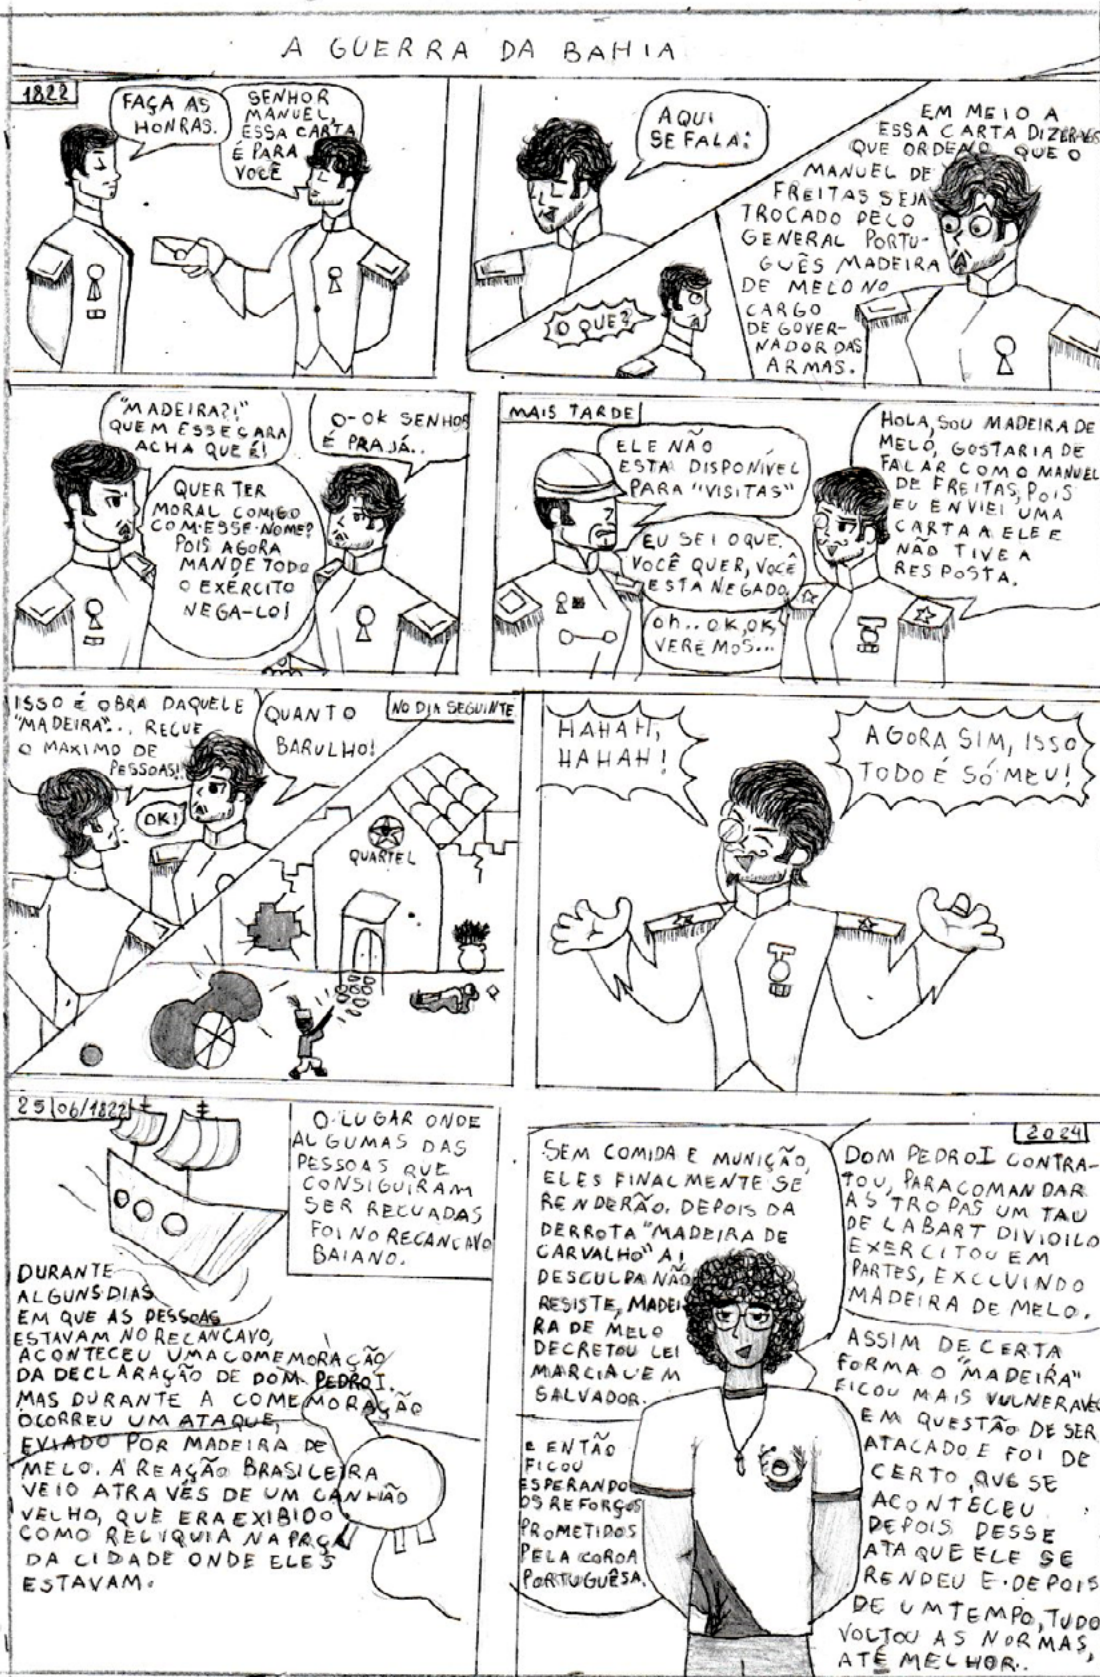 A GUERRA DA BAHIA
1822
FAÇA AS
HONRAS.
SENHOR
MANUEL,
ESSA CARTA
É PARA
VOCÊ
AQUI
SE FALA:
O QUE?
EM MEIO A
ESSA CARTA DIZEMOS
QUE ORDENO QUE O
MANUEL DE
FREITAS SEJA
TROCADO PELO
GENERAL PORTU-
GUÊS MADEIRA
DE MELO NO
CARGO
DE GOVER-
NADOR DAS
ARMAS.
"MADEIRA?!"
QUEM ESSE CARA
ACHA QUE É!
QUER TER
MORAL COMIGO
COM ESSE NOME?
POIS AGORA
MANDE TODO
O EXÉRCITO
NEGA-LO!
O-OK SENHOR
É PRA JÁ..
MAIS TARDE
HOLA, SOU MADEIRA DE
MELO, GOSTARIA DE
FALAR COM O MANUEL
DE FREITAS, POIS
EU ENVIEI UMA
CARTA A ELE E
NÃO TIVE A
RESPOSTA.
ELE NÃO
ESTA DISPONÍVEL
PARA "VISITAS"
EU SEI O QUE
VOCÊ QUER, VOCÊ
ESTA NEGADO
Oh.. OK, OK,
VEREMOS...
ISSO É OBRA DAQUELE
"MADEIRA"... RECUE
O MAXIMO DE
PESSOAS!!
OK!
QUANTO
BARULHO!
NO DIA SEGUINTE
QUARTEL
HAHAH,
HAHAH!
AGORA SIM, ISSO
TODO É SÓ MEU!
25/06/1822
O LUGAR ONDE
ALGUMAS DAS
PESSOAS QUE
CONSIGUIRAM
SER RECUADAS
FOI NO RECANCAVO
BAIANO.
DURANTE
ALGUNS DIAS
EM QUE AS PESSOAS
ESTAVAM NO RECANCAVO,
ACONTECEU UMA COMEMORAÇÃO
DA DECLARAÇÃO DE DOM PEDRO I.
MAS DURANTE A COMEMORAÇÃO
OCORREU UM ATAQUE,
EVIADO POR MADEIRA DE
MELO. A REAÇÃO BRASILEIRA
VEIO ATRAVÉS DE UM CANHÃO
VELHO, QUE ERA EXIBIDO
COMO RELIQUIA NA PRAÇA
DA CIDADE ONDE ELES
ESTAVAM.
2024
SEM COMIDA E MUNIÇÃO,
ELES FINALMENTE SE
RENDERÃO. DEPOIS DA
DERROTA "MADEIRA DE
CARVALHO" AI
DESCULPA NÃO
RESISTE, MADEI
RA DE MELO
DECRETOU LEI
MARCIAL EM
SALVADOR.
E ENTÃO
FICOU
ESPERANDO
OS REFORÇOS
PROMETIDOS
PELA COROA
PORTUGUÊSA.
DOM PEDRO I CONTRA-
TOU, PARA COMANDAR
AS TROPAS UM TAU
DE LABART DIVIDILO
EXERCITOU EM
PARTES, EXCLUINDO
MADEIRA DE MELO.
ASSIM DE CERTA
FORMA O "MADEIRA"
FICOU MAIS VULNERAVEL
EM QUESTÃO DE SER
ATACADO E FOI DE
CERTO QUE SE
ACONTECEU
DEPOIS DESSE
ATAQUE ELE SE
RENDEU E DEPOIS
DE UM TEMPO, TUDO
VOLTOU AS NORMAS,
ATÉ MELHOR.